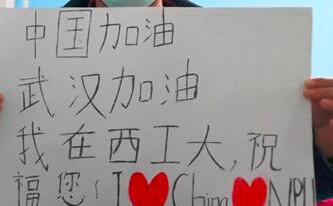 中国加油
武汉加油
我在西工大,祝
福您!I❤China❤NPU